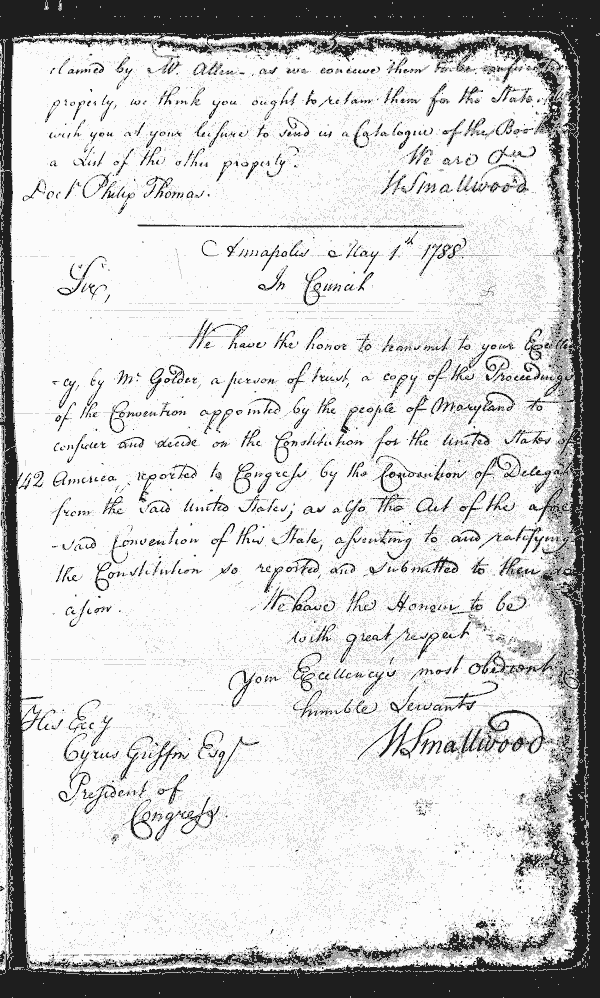 claimed by Mr. Allen - as we conceive them to be
property, we think you ought to retain them for the State.
wish you at your leisure to send us a Catalogue of the Book
a List of the other property.
We are &ca
Doctr Philip Thomas.
WSmallwood
Annapolis May 1st 1788.
In Council
Sir,
We have the honor to transmit to your Excellen
-cy, by Mr Golder, a person of trust, a copy of the Proceedings
of the Convention appointed by the people of Maryland to
consider and decide on the Constitution for the United States of
142 America, reported to Congress by the Convention of Delegat
from the said United States; as also the Act of the afore
-said Convention of this State, assenting to and ratifying
the Constitution so reported, and submitted to their
cision.
We have the Honour to be
with great respect
Your Excellency's most obedient
humble Servants
WSmallwood
His Excy
Cyrus Griffin Esqr
President of
Congress.